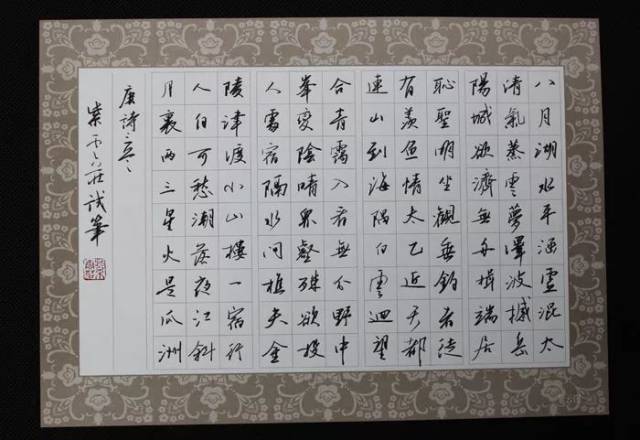 八月湖水平涵虛混太
清氣蒸雲夢澤波撼岳
陽城欲濟無舟楫端居
恥聖明坐觀垂釣者徒
有羨魚情太乙近天都
連山到海隅白雲迴望
合青靄入看無分野中
峯變陰晴眾壑殊欲投
人處宿隔水問樵夫金
陵津渡小山樓一宿行
人自可愁潮落夜江斜
月裏兩三星火是瓜洲
唐詩三首
莊試筆